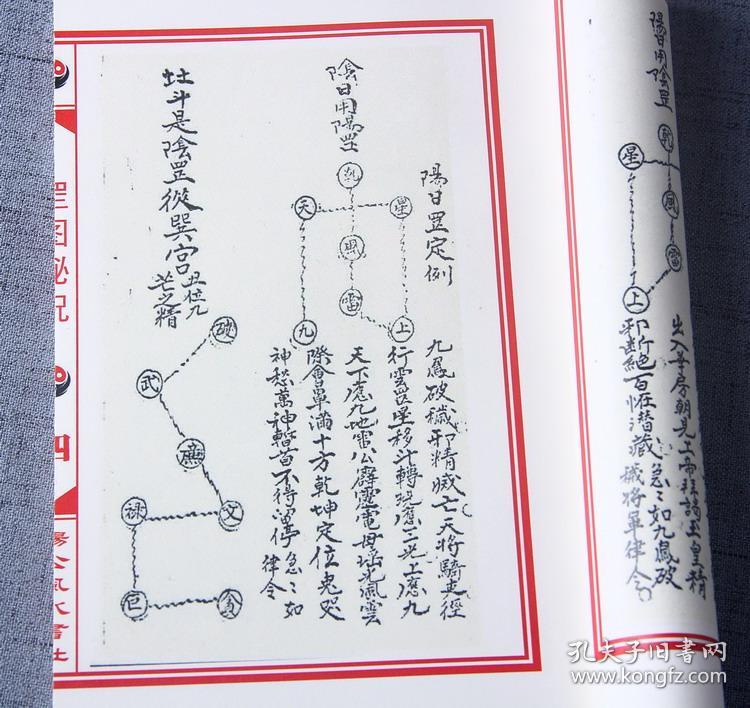 陽日用陰罡
乾
星
風
雷
上
出入華房朝見上帝拜謁玉皇精
邪斷絕百怪潛藏急〻如九鳳破
穢將軍律令
陽日罡定例
九鳳破穢邪精滅亡天將騎吏徑
行雲罡星移斗轉現應三光上應九
天下應九地雷公霹靂電母瑶光風雲
際會罩滿十方乾坤定位鬼哭
神愁萬神暫苗不得畱停急〻如
律令
陰日用陽罡
乾
天
星
風
雷
九
上
斗是陰罡從巽宮
丑位九
芒之精
破
武
廉
文
禄
巨
貪
罡图秘况
四
杨公风水書社
孔夫子旧書网
www.kongfz.com